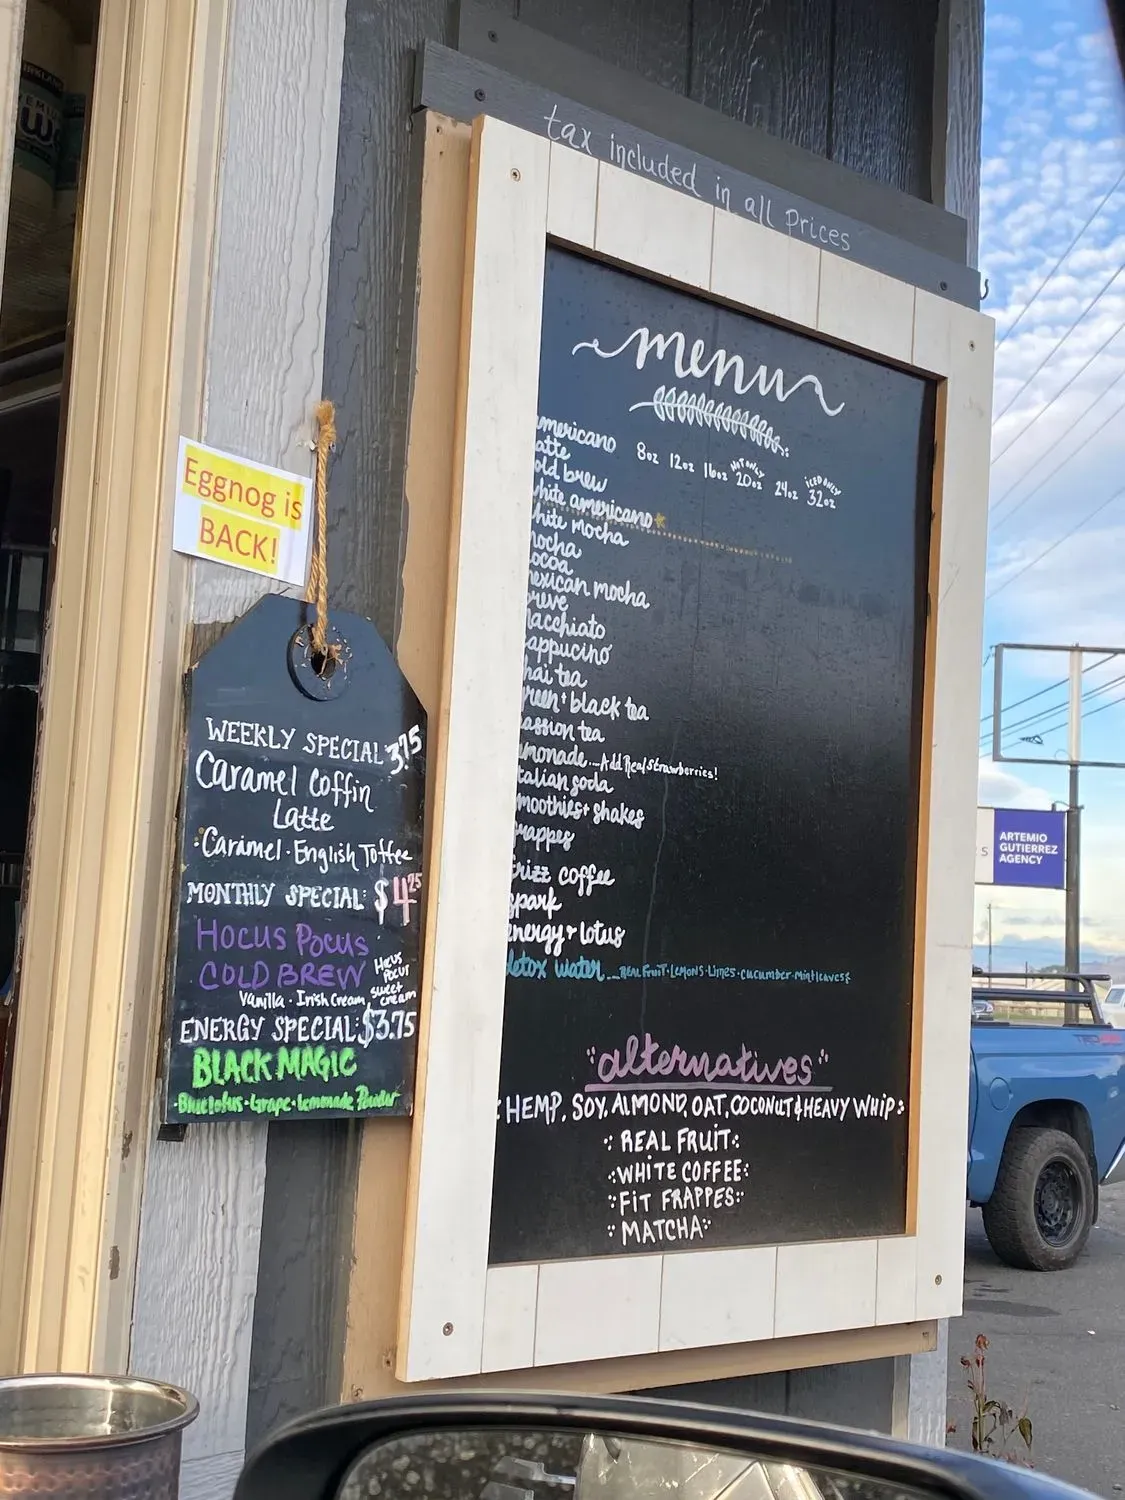 tax included in all Prices
menu
8oz 12oz 16oz HOT ONLY 20oz 24oz ICED ONLY 32oz
americano
latte
old brew
white americano
white mocha
mocha
cocoa
mexican mocha
breve
macchiato
cappucino
hai tea
green + black tea
passion tea
emonade... Add Real Strawberries!
talian soda
moothies + shakes
frappes
frizz coffee
spark
energy + lotus
detox water... REAL FRUIT · LEMONS · LIMES · CUCUMBER · Mint leaves
"alternatives"
HEMP, SOY, ALMOND, OAT, COCONUT & HEAVY WHIP
REAL FRUIT
WHITE COFFEE
FIT FRAPPES
MATCHA
Eggnog is
BACK!
WEEKLY SPECIAL 3.75
Caramel Coffin
Latte
Caramel · English Toffee
MONTHLY SPECIAL: $4.25
HOCUS POCUS
COLD BREW
Vanilla · Irish Cream
Hocus Pocus sweet cream
ENERGY SPECIAL: $3.75
BLACK MAGIC
Blue lotus · Grape · Lemonade Powder
ARTEMIO
GUTIERREZ
AGENCY